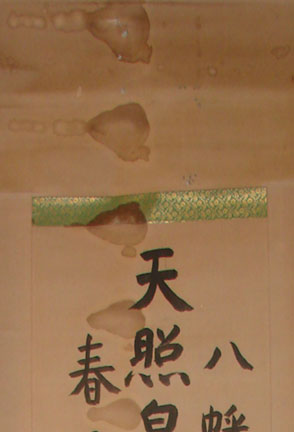 天照皇
八幡
春